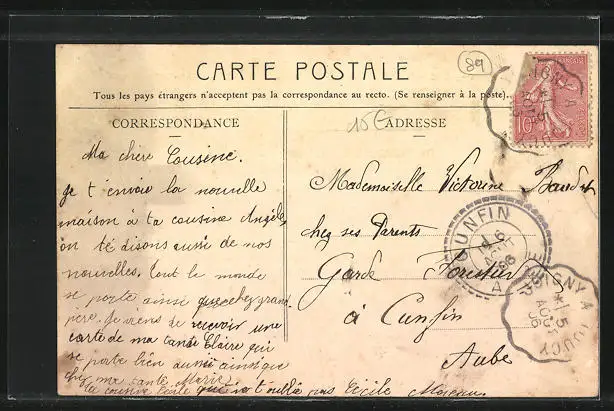 89
CARTE POSTALE
Tous les pays étrangers n'acceptent pas la correspondance au recto. (Se renseigner à la poste).
CORRESPONDANCE
15€
ADRESSE
Ma chère Cousine.
Je t'envoie la nouvelle
maison à ta cousine Angèle,
on te disons aussi de nos
nouvelles, tout le monde
se porte ainsi que chez grand
père. Je viens de recevoir une
carte de ma tante Claire qui
se porte bien aussi ainsi que
chez ma tante Marie.
Ta cousine Cécile qui ne t'oublie pas Cécile
Mademoiselle Victorine
chez ses Parents
Garde Forestier
à Cunfin
Aube
10
CUNFIN
6
AOUT
06
5
AOUT
06